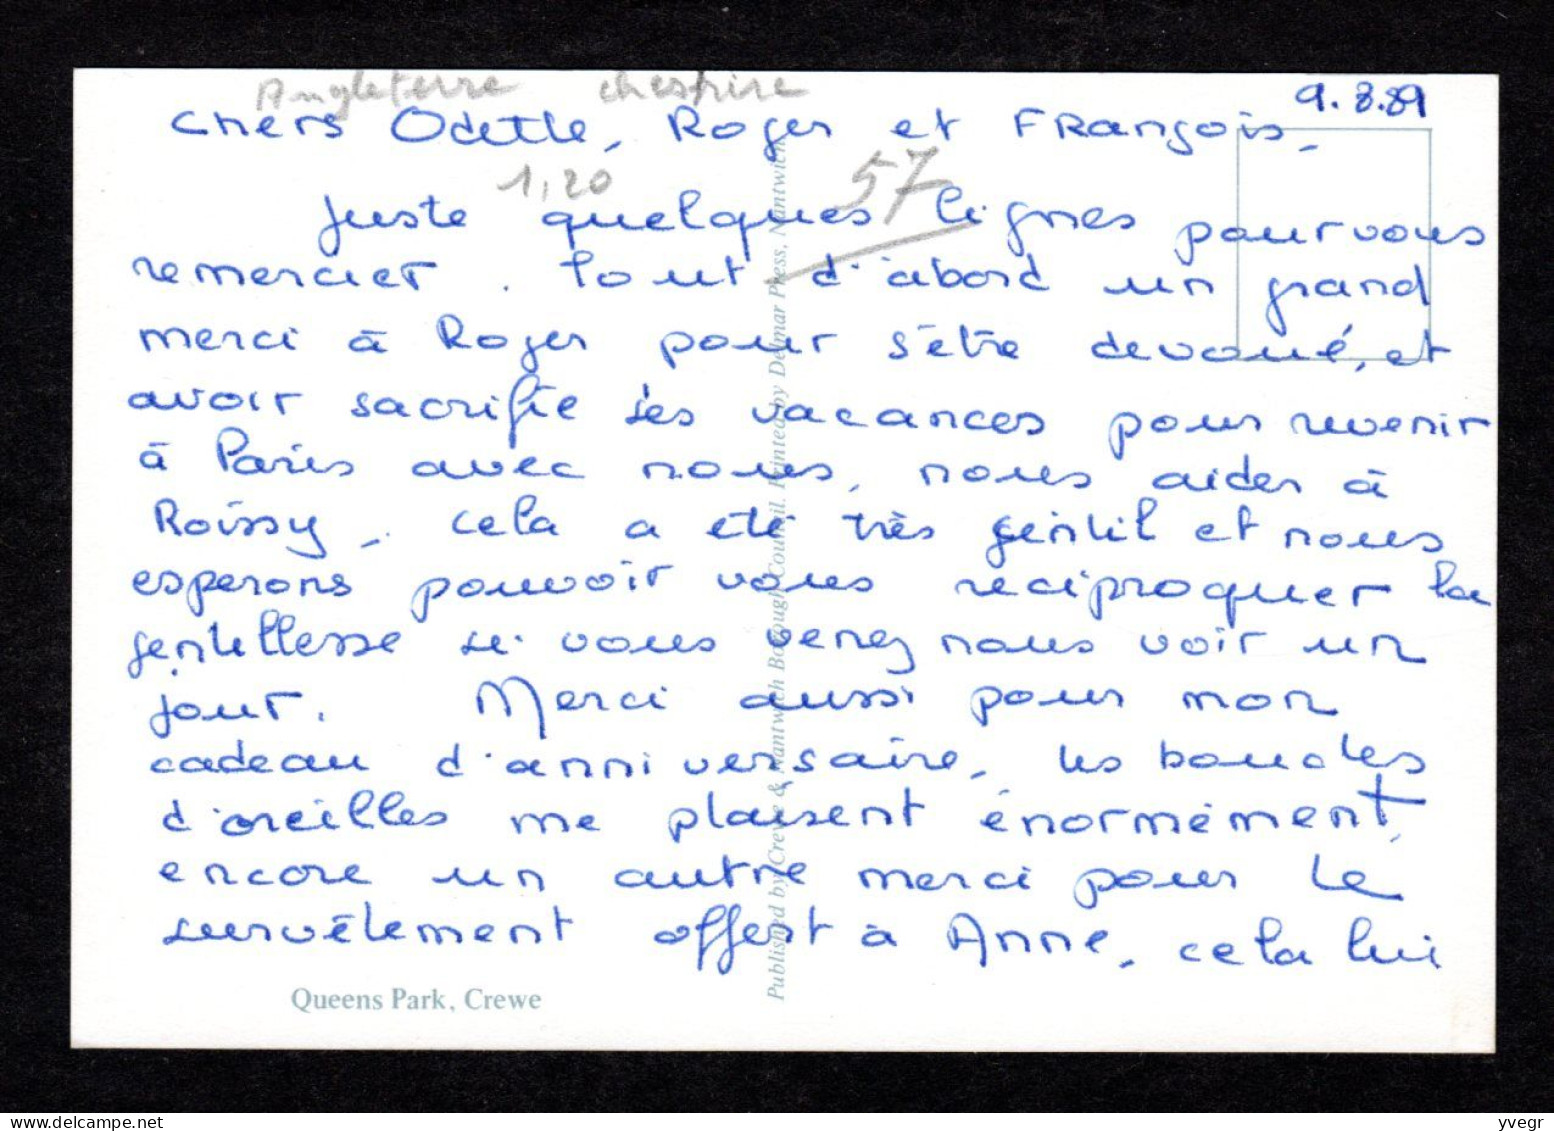 Angleterre cheshire
9.8.89
Chers Odette, Roger et François,
1,20
57
Juste quelques lignes pour vous
remercier. Tout d'abord un grand
merci à Roger pour s'être devoué, et
avoir sacrifié ses vacances pour revenir
à Paris avec nous, nous aider à
Roissy, cela a été très gentil et nous
esperons pouvoir vous réciproquer la
gentillesse si vous venez nous voir un
jour. Merci aussi pour mon
cadeau d'anniversaire, les boucles
d'oreilles me plaisent énormément,
encore un autre merci pour le
survêtement offert à Anne, cela lui
Queens Park, Crewe
Published by Crewe & Nantwich Borough Council. Printed by Delmar Press, Nantwich
yvegr